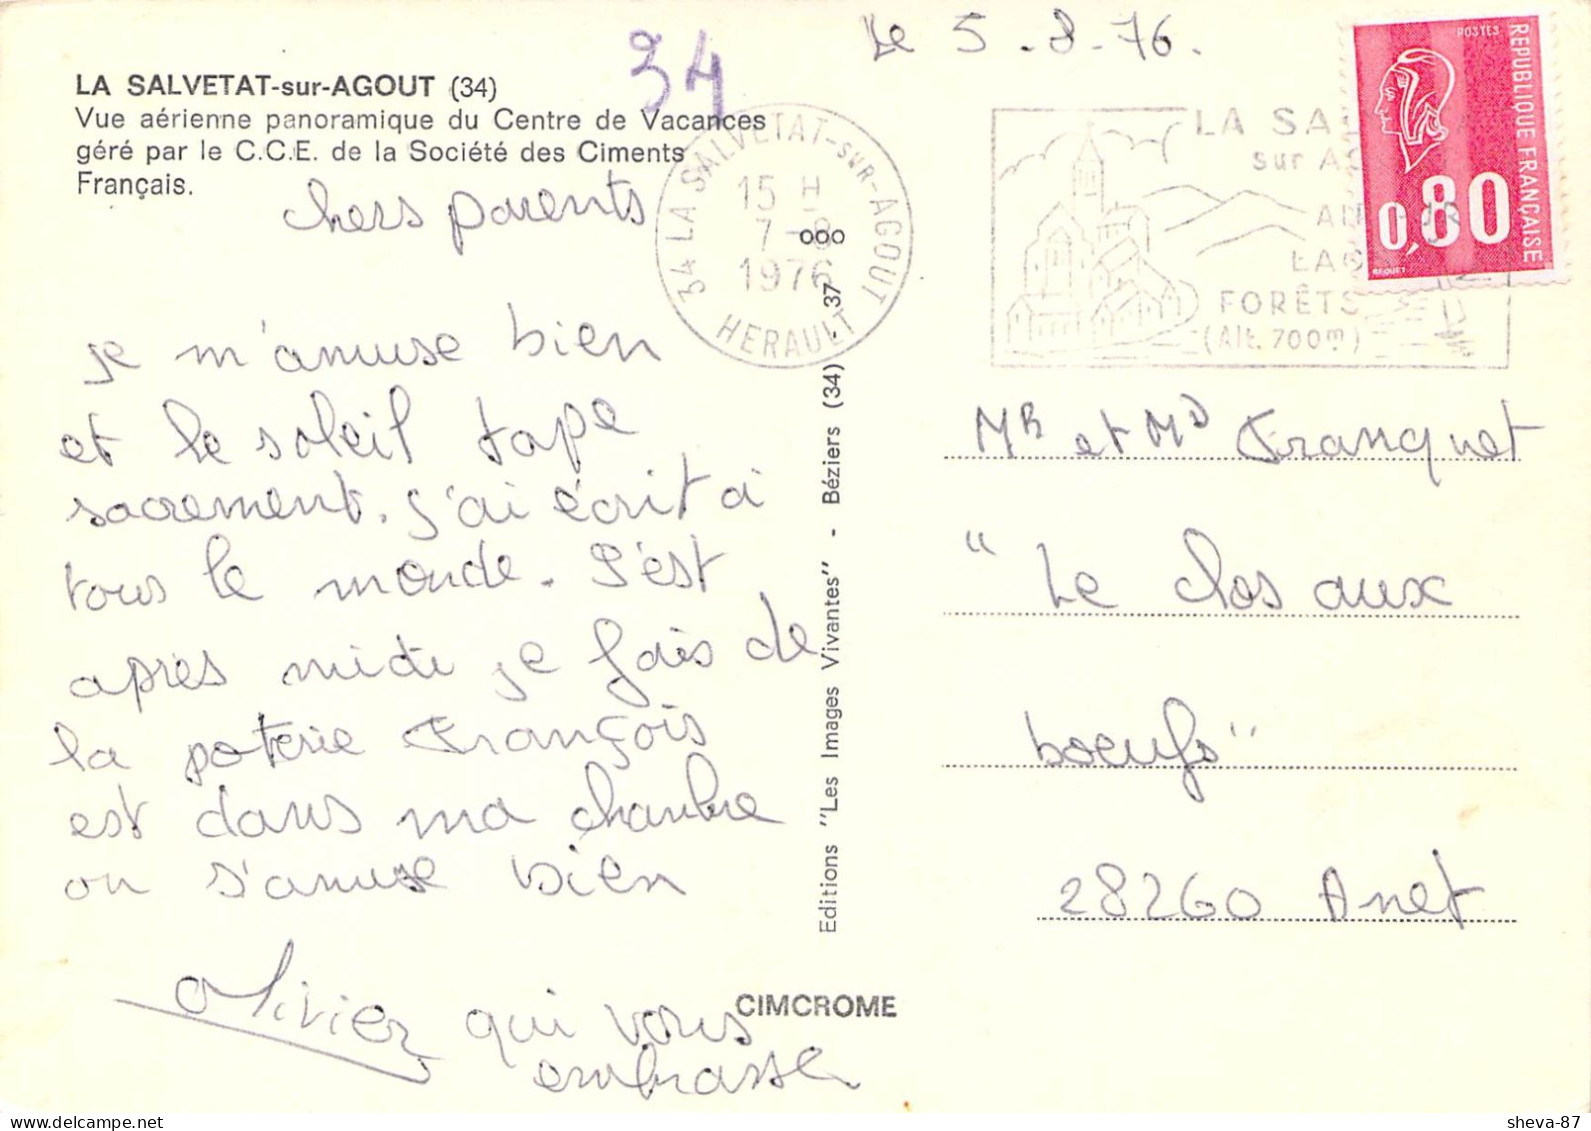 Le 5-8-76.
34
LA SALVETAT-sur-AGOUT (34)
Vue aérienne panoramique du Centre de Vacances
géré par le C.C.E. de la Société des Ciments
Français.
chers parents
je m'amuse bien
et le soleil tape
sacrement. j'ai écrit à
tous le monde. S'est
après midi je fais de
la poterie François
est dans ma chambre
on s'amuse bien
Olivier qui vous
embrasse
34 LA SALVETAT-SUR-AGOUT
15 H
7-8
1976
HERAULT
LA SA
sur A
LAC
FORÊTS
(Alt. 700m)
POSTES
REPUBLIQUE FRANÇAISE
0,80
BEQUET
Editions "Les Images Vivantes" - Béziers (34) - 37
ooo
CIMCROME
MR et MD Franquet
"Le clos aux
boeufs"
28260 Anet
sheva-87